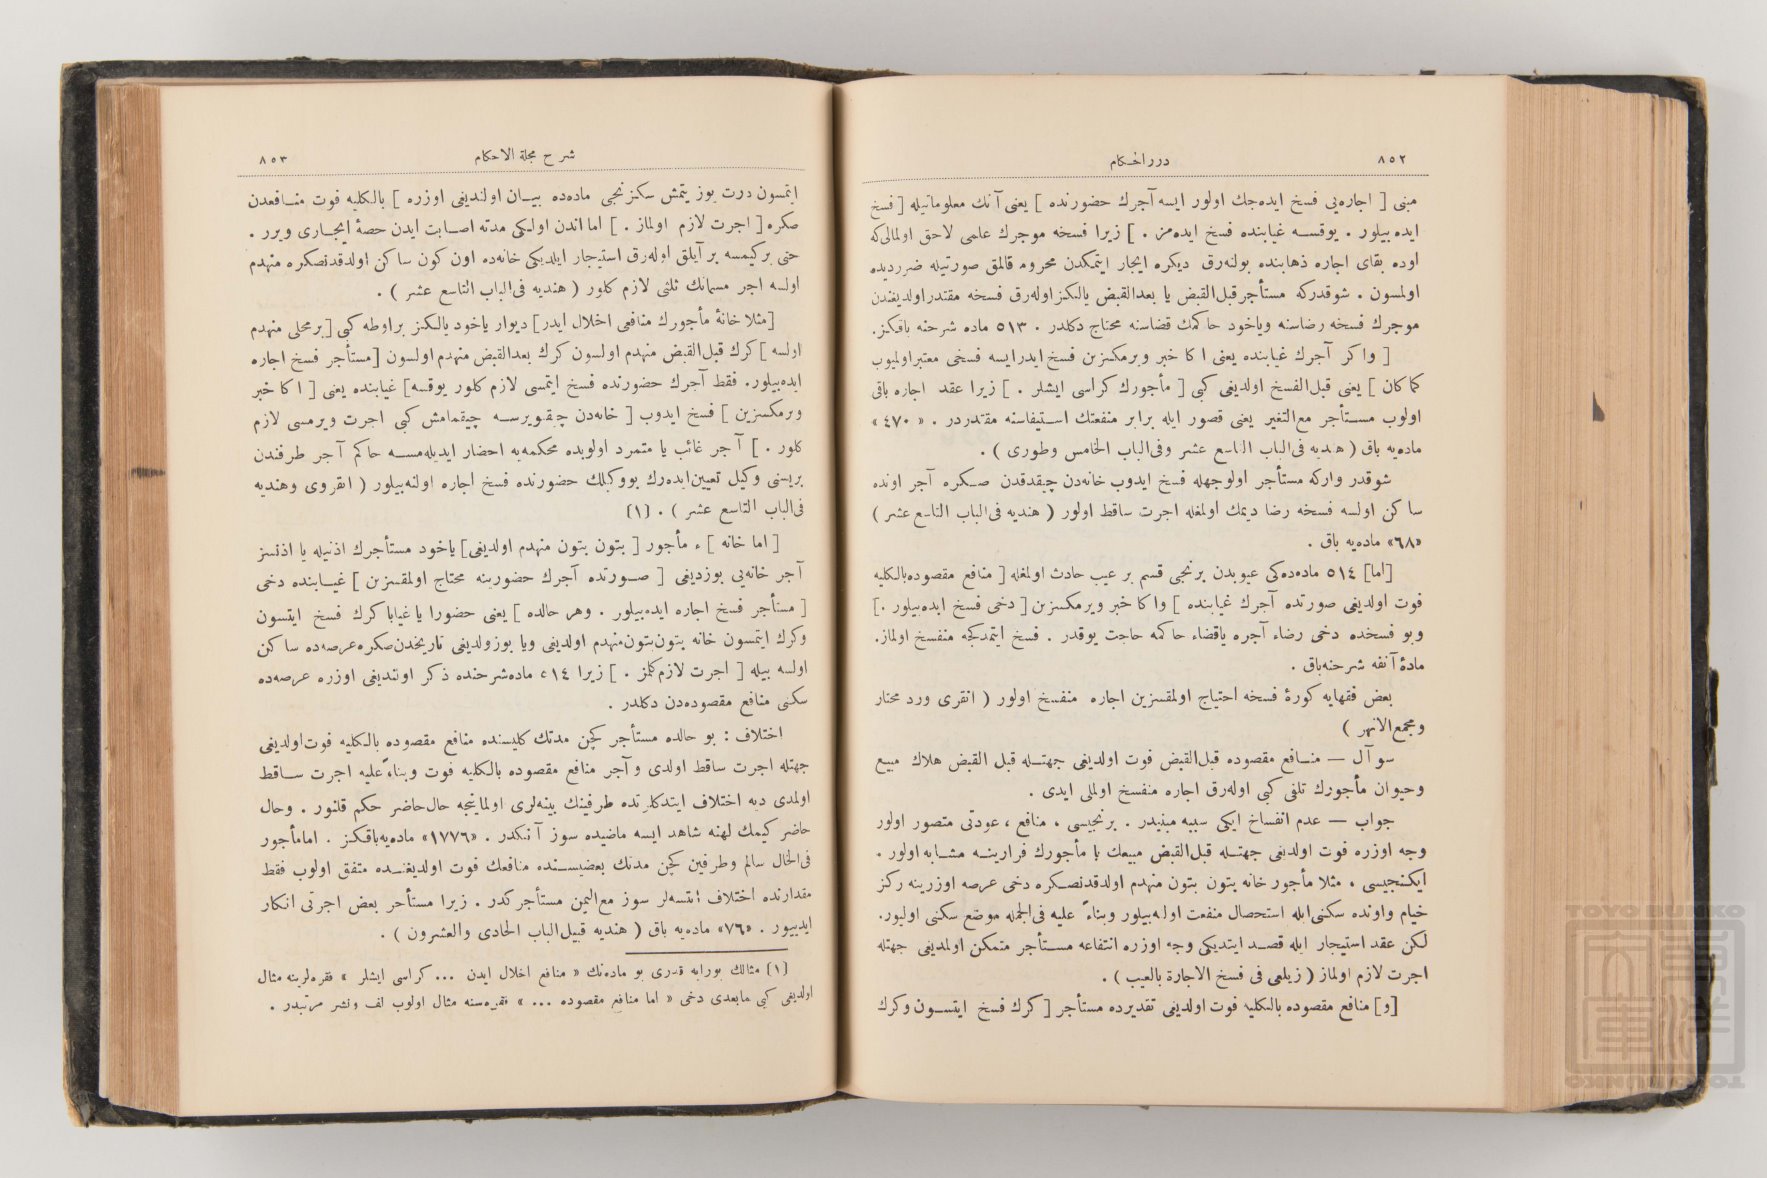 ٨٥٢
درر الحكام
مبنی [ اجاره‌یی فسخ ایده‌جك اولور ایسه آجرك حضورنده ] یعنی آنك معلوماتیله [ فسخ
ایده بیلور . یوقســه غیابنده فسخ ایده‌مز . ] زیرا فسخه موجرك علمی لاحق اولمالی‌كه
اوده بقای اجاره ذهابنده بولنه‌رق دیكره ایجار ایتمكدن محروم قالمق صورتیله ضرردیده
اولمسون . شوقدركه مستأجر قبل‌القبض یا بعدالقبض یالكز اوله‌رق فسخه مقتدر اولدیغندن
موجرك فسخه رضاسنه ویاخود حاكمك قضاسنه محتاج دكلدر . ٥١٣ ماده شرحنه باقكز.
[ واكر آجرك غیابنده یعنی اكا خبر ویرمكسزین فسخ ایدرایسه فسخی معتبر اولمیوب
كماكان ] یعنی قبل‌الفسخ اولدیغی كبی [ مأجورك كراسی ایشلر . ] زیرا عقد اجاره باقی
اولوب مســتأجر مع‌التغیر یعنی قصور ایله برابر منفعتك اســتیفاسنه مقتدردر . « ٤٧٠ »
ماده‌یه باق ( هندیه فی‌الباب التاسع عشر وفی‌الباب الخامس وطوری ) .
شوقدر واركه مستأجر اولوجهله فسخ ایدوب خانه‌دن چیقدقدن صـكره آجر اونده
ساكن اولسه فسخه رضا دیمك اولمغله اجرت ساقط اولور ( هندیه فی‌الباب التاسع عشر )
«٦٨» ماده‌یه باق .
[اما] ٥١٤ ماده‌ده‌كی عیوبدن برنجی قسم بر عیب حادث اولمغله [ منافع مقصوده بالكلیه
فوت اولدیغی صورتده آجرك غیابنده ] واكا خبر ویرمكسزین [ دخی فسخ ایده‌بیلور .]
وبو فسخده دخی رضاء آجره یاقضاء حاكمه حاجت یوقدر . فسخ ایتمدكجه منفسخ اولماز.
مادهٔ آنفه شرحنه‌باق .
بعض فقهایه كورهٔ فسخه احتیاج اولمقسزین اجاره منفسخ اولور ( انقری ورد محتار
ومجمع الانهر )
سوآل — منـافع مقصوده قبل‌القبض فوت اولدیغی جهتــله قبل القبض هلاك مبیع
وحیوان مأجورك تلفی كبی اوله‌رق اجاره منفسخ اولملی ایدی .
جواب — عدم انفساخ ایكی سببه مبنیدر . برنجیسی ، منافع ، عودتی متصور اولور
وجه اوزره فوت اولدیغی جهتــله قبل‌القبض مبیعك یا مأجورك فرارینــه مشـابه اولور .
ایكنجیسی ، مثلا مأجور خانه بتون بتون منهدم اولدقدنصـكره دخی عرصه اوزرینه ركز
خیام واونده سكنی‌ایله استحصال منفعت اوله‌بیلور وبناءً علیه فی‌الجمله موضع سكنی اولیور.
لكن عقد استیجار ایله قصـد ایتدیكی وجه اوزره انتفاعه مســتأجر متمكن اولمدیغی جهتله
اجرت لازم اولماز ( زیلعی فی فسخ الاجارة بالعیب ) .
[و] منافع مقصوده بالكلیه فوت اولدیغی تقدیرده مستأجر [ كرك فسخ ایتســون وكرك
شرح مجلة الاحكام
٨٥٣
ایتمسون درت یوز یتمش سكزنجی ماده‌ده بیـان اولندیغی اوزره ] بالكلیه فوت منـافعدن
صكره [ اجرت لازم اولماز . ] اما اندن اولكی مدته اصـابت ایدن حصهٔ ایجـاری ویرر .
حتی بركیمسه بر آیلق اوله‌رق استیجار ایلدیكی خانه‌ده اون كون ساكن اولدقدنصكره منهدم
اولسه اجر مسمانك ثلثی لازم كلور ( هندیه فی‌الباب التاسع عشر ) .
[مثلا خانهٔ مأجورك منافعی اخلال ایدر] دیوار یاخود یالكز براوطه كبی [برمحلی منهدم
اولسه ] كرك قبل‌القبض منهدم اولسون كرك بعدالقبض منهدم اولسون [مستأجر فسخ اجاره
ایده‌بیلور. فقط آجرك حضورنده فسخ ایتمسی لازم كلور یوقسه] غیابنده یعنی [ اكا خبر
ویرمكسزین ] فسخ ایدوب [ خانه‌دن چیقویرســه چیقمامش كبی اجرت ویرمسی لازم
كلور . ] آجر غائب یا متمرد اولوبده محكمه‌یه احضار ایدیله‌مســه حاكم آجر طرفندن
بریسنی وكیل تعیین‌ایده‌رك بووكیلك حضورنده فسخ اجاره اولنه‌بیلور ( انقروی وهندیه
فی‌الباب التاسع عشر ) . [١]
[ اما خانه ] ء مأجور [ بتون بتون منهدم اولدیغی] یاخود مستأجرك اذنیله یا اذنسز
آجر خانه‌یی بوزدیغی [ صـورتده آجرك حضورینه محتاج اولمقسزین ] غیـابنده دخی
[ مستأجر فسخ اجاره ایده‌بیلور . وهر حالده ] یعنی حضورا یا غیابا كرك فسخ ایتسون
وكرك ایتمسون خانه بتون‌بتون‌منهدم اولدیغی ویا بوزولدیغی تاریخدن‌صكره‌عرصه‌ده ساكن
اولسه بیله [ اجرت لازم‌كلمز . ] زیرا ٥١٤ ماده‌شرحنده ذكر اولندیغی اوزره عرصه‌ده
سكنی منافع مقصوده‌دن دكلدر .
اختلاف : بو حالده مستأجر كچن مدتك كلیسنده منافع مقصوده بالكلیه فوت‌اولدیغی
جهتله اجرت ساقط اولدی و آجر منافع مقصوده بالكلیه فوت وبناءً علیه اجرت ســاقط
اولمدی دیه اختلاف ایتدكلرنده طرفینك بینه‌لری اولمایینجه حال‌حاضر حكم قلنور . وحال
حاضر كیمك لهنه شاهد ایسه ماضیده سوز آنكدر . «١٧٧٦» ماده‌یه‌باقكز . امامأجور
فی‌الحال سالم وطرفین كچن مدتك بعضیســنده منافعك فوت اولدیغنــده متفق اولوب فقط
مقدارنده اختلاف ایتسه‌لر سوز مع‌الیمین مستأجركدر . زیرا مستأجر بعض اجرتی انكار
ایدییور . «٧٦» ماده‌یه باق ( هندیه قبیل‌الباب الحادی والعشرون ) .
[١] مثالك بورایه قدری بو ماده‌نك « منافع اخلال ایدن ... كراسی ایشلر » فقره‌لرینه مثال
اولدیغی كبی مابعدی دخی « اما منافع مقصوده ... » فقره‌سنه مثال اولوب لف ونشر مرتبدر .
TOYO BUNKO
TOYO BUNKO